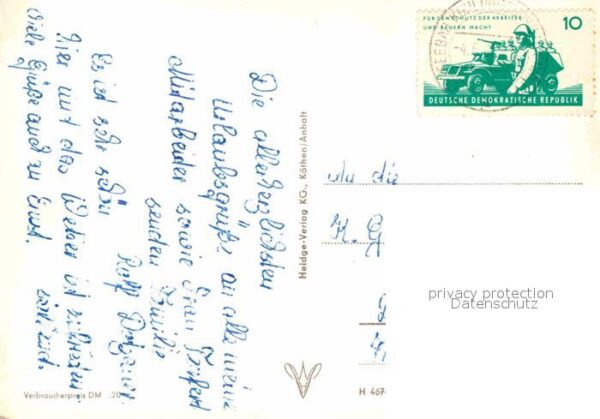 Die allerherzlichsten
Urlaubsgrüße an alle meine
Mitarbeider sowie Frau
senden Familie
Rolf
Es ist sehr schön
hier und das Wetter ist
Viele Grüße auch zu Ernst.
Verbraucherpreis DM .20
Heldge-Verlag KG., Köthen/Anhalt
H 467
FÜR DEN SCHUTZ DER ARBEITER
UND BAUERN-MACHT
10
DEUTSCHE DEMOKRATISCHE REPUBLIK
An die
K. G
privacy protection
Datenschutz